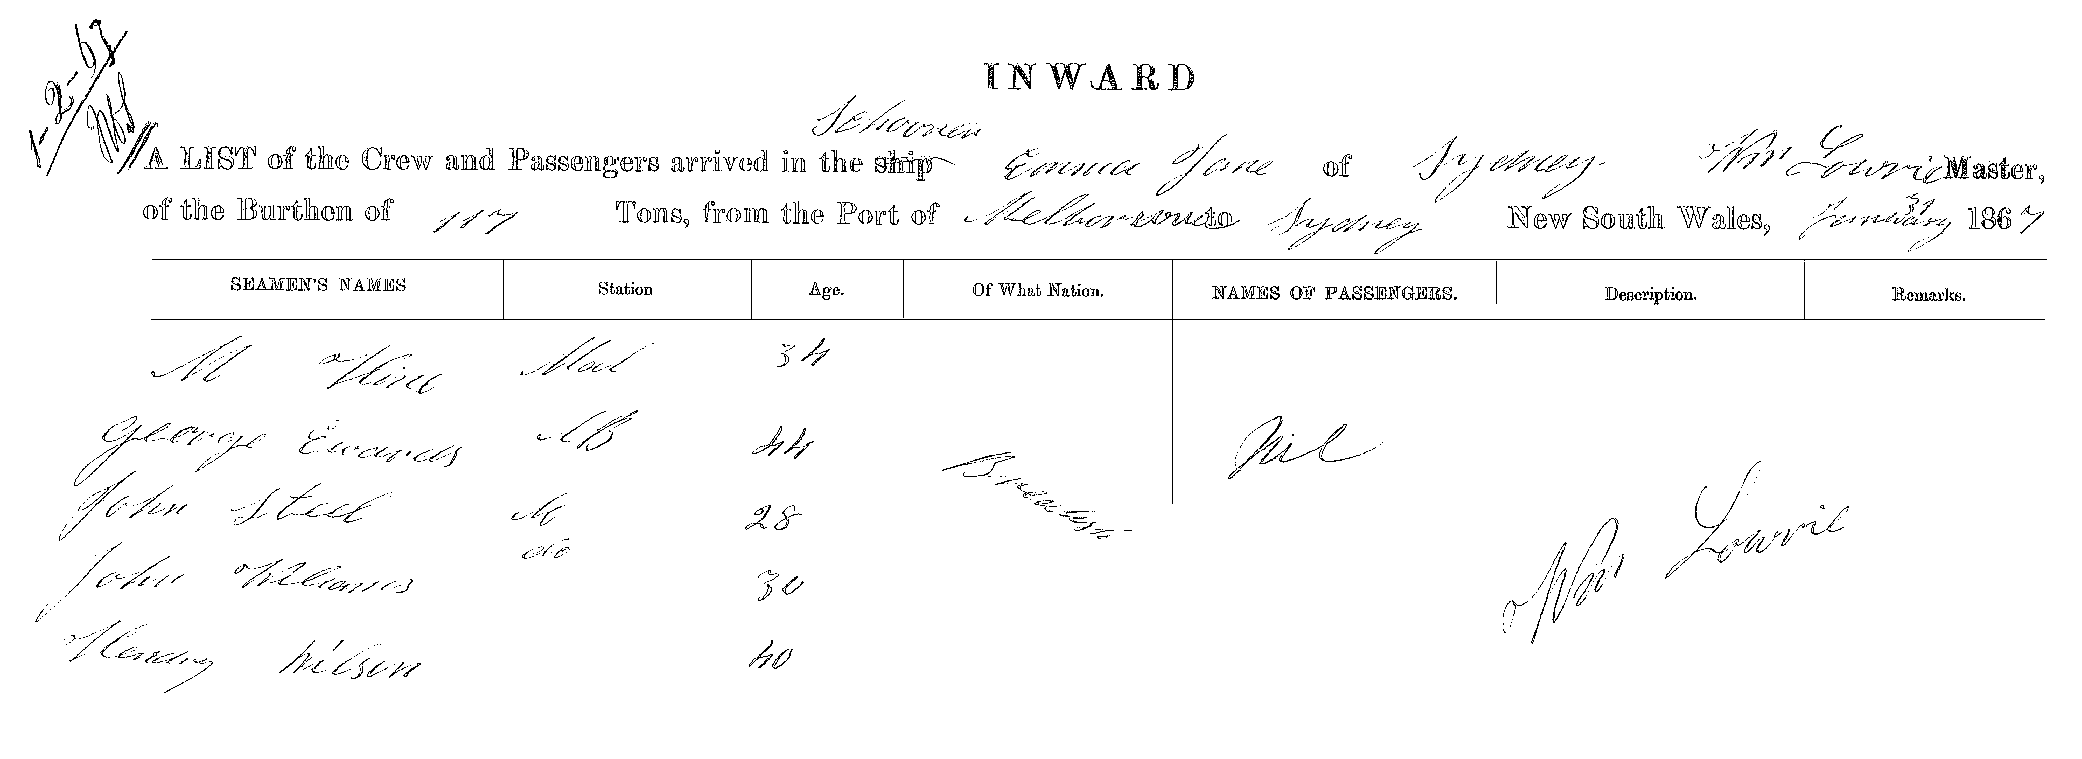 1-2-67
INWARD
Schooner
A LIST of the Crew and Passengers arrived in the ship Emma Jane of Sydney Wm Lowrie Master,
of the Burthen of 117 Tons, from the Port of Melbourne to Sydney New South Wales, 31 January 1867
SEAMEN'S NAMES Station Age. Of What Nation. NAMES OF PASSENGERS. Description. Remarks.
M 34
George Ewards AB 44 Nil
John Steel 28
do
John Williams 30
Hendry Wilson 40
Wm Lowrie